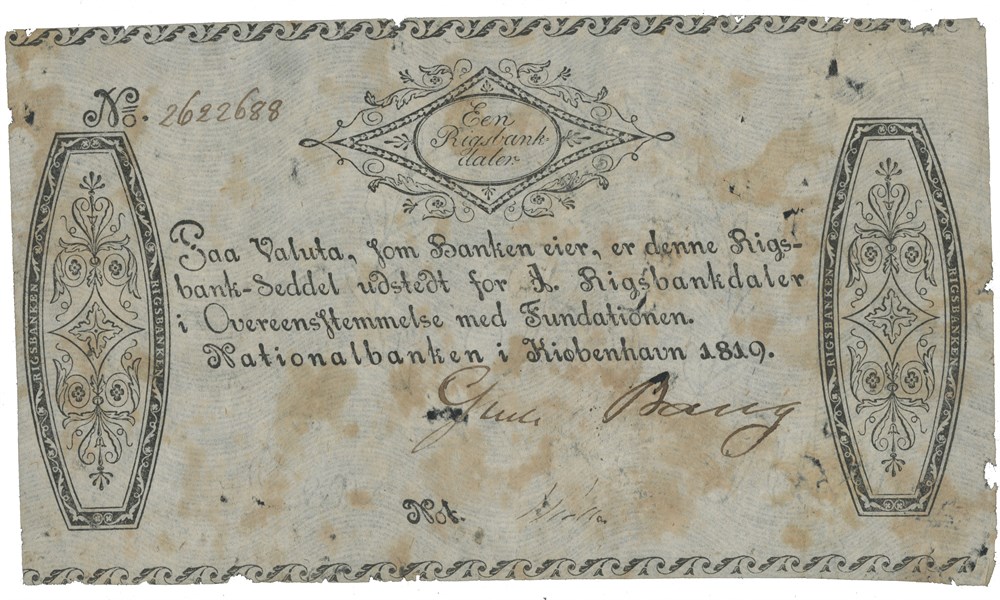 No. 2622688
Een
Rigsbank-
daler
Paa Valuta, som Banken eier, er denne Rigs-
bank-Seddel udstedt for 1. Rigsbankdaler
i Overeensstemmelse med Fundationen.
Nationalbanken i Kiøbenhavn 1819.
Bang
Not.
RIGSBANKEN
RIGSBANKEN
RIGSBANKEN
RIGSBANKEN